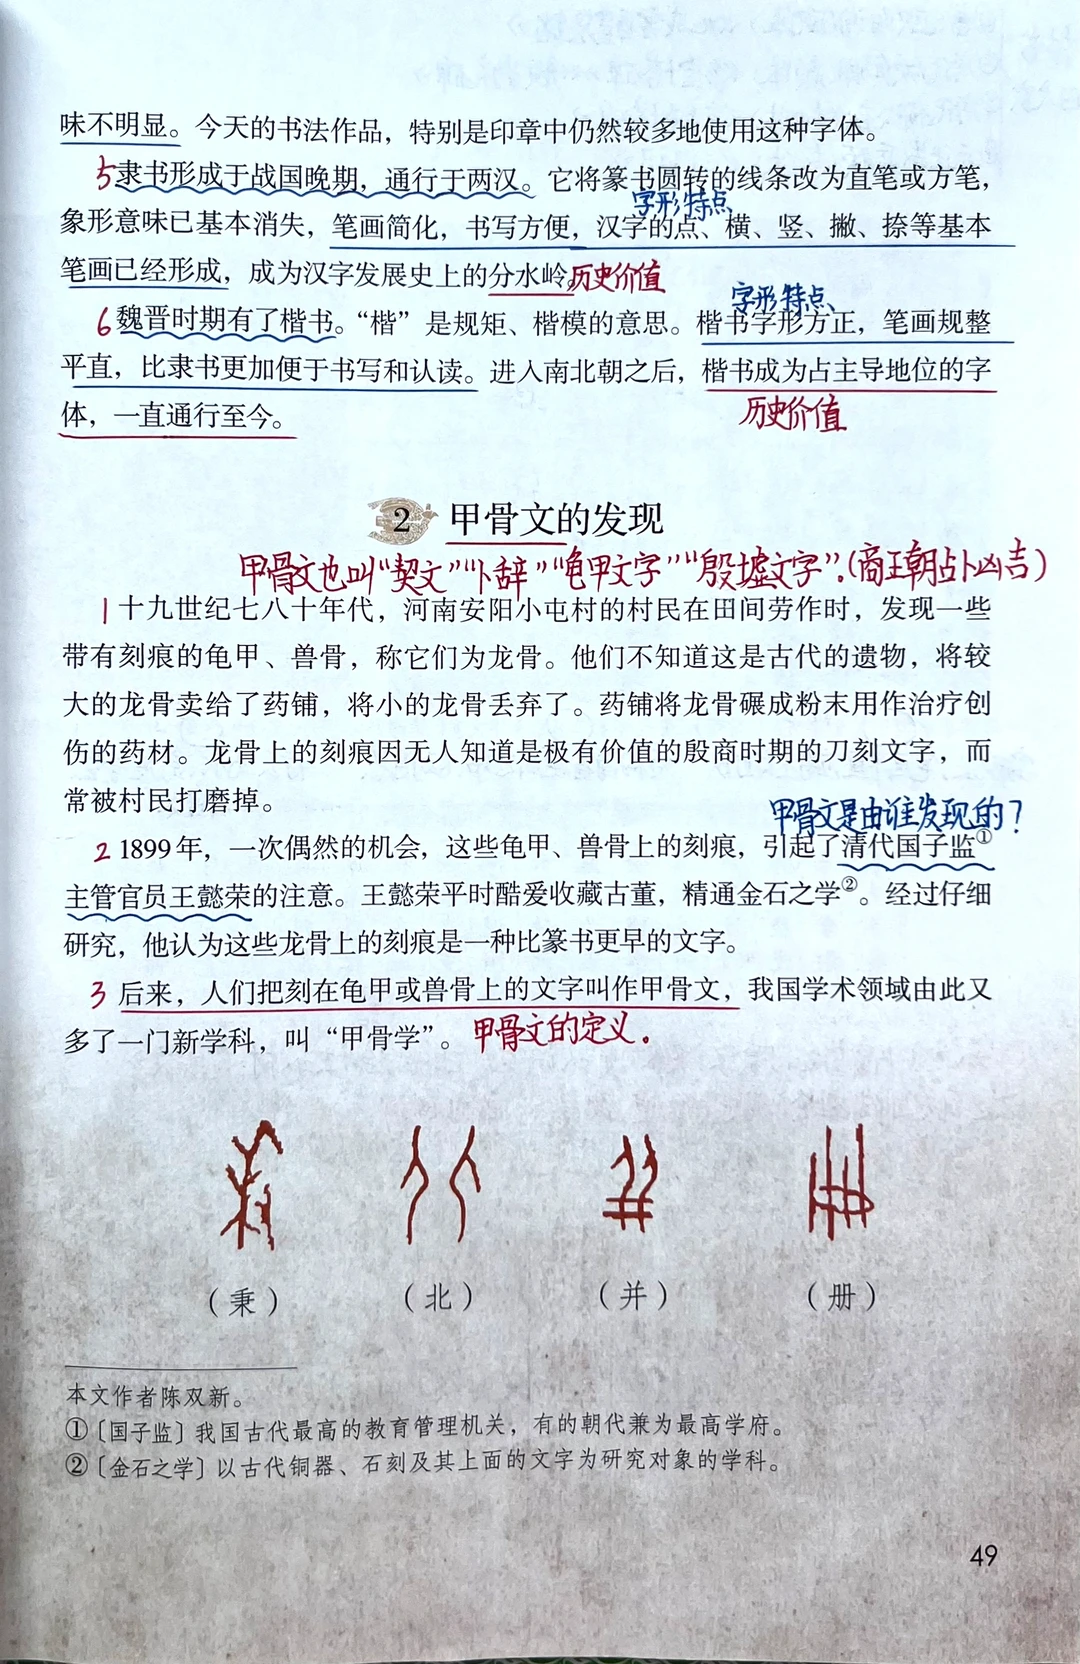 味不明显。今天的书法作品，特别是印章中仍然较多地使用这种字体。
5隶书形成于战国晚期，通行于两汉。它将篆书圆转的线条改为直笔或方笔，
字形特点
象形意味已基本消失，笔画简化，书写方便，汉字的点、横、竖、撇、捺等基本
笔画已经形成，成为汉字发展史上的分水岭。历史价值
字形特点、
6魏晋时期有了楷书。“楷”是规矩、楷模的意思。楷书字形方正，笔画规整
平直，比隶书更加便于书写和认读。进入南北朝之后，楷书成为占主导地位的字
体，一直通行至今。
历史价值
2 甲骨文的发现
甲骨文也叫“契文”“卜辞”“龟甲文字”“殷墟文字”.(商王朝占卜凶吉)
1十九世纪七八十年代，河南安阳小屯村的村民在田间劳作时，发现一些
带有刻痕的龟甲、兽骨，称它们为龙骨。他们不知道这是古代的遗物，将较
大的龙骨卖给了药铺，将小的龙骨丢弃了。药铺将龙骨碾成粉末用作治疗创
伤的药材。龙骨上的刻痕因无人知道是极有价值的殷商时期的刀刻文字，而
常被村民打磨掉。
甲骨文是由谁发现的？
2 1899年，一次偶然的机会，这些龟甲、兽骨上的刻痕，引起了清代国子监①
主管官员王懿荣的注意。王懿荣平时酷爱收藏古董，精通金石之学②。经过仔细
研究，他认为这些龙骨上的刻痕是一种比篆书更早的文字。
3后来，人们把刻在龟甲或兽骨上的文字叫作甲骨文，我国学术领域由此又
多了一门新学科，叫“甲骨学”。甲骨文的定义.
（秉）（北）（并）（册）
本文作者陈双新。
①〔国子监〕我国古代最高的教育管理机关，有的朝代兼为最高学府。
②〔金石之学〕以古代铜器、石刻及其上面的文字为研究对象的学科。
49